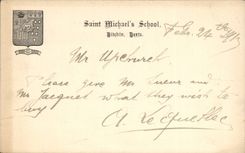 Saint Michael's School,
Hitchin, Herts.
Feb. 24th
Mr Upchurch
Please give Mr Lueur and
Mr Jacquet what they wish to
buy
A. Le Quellec